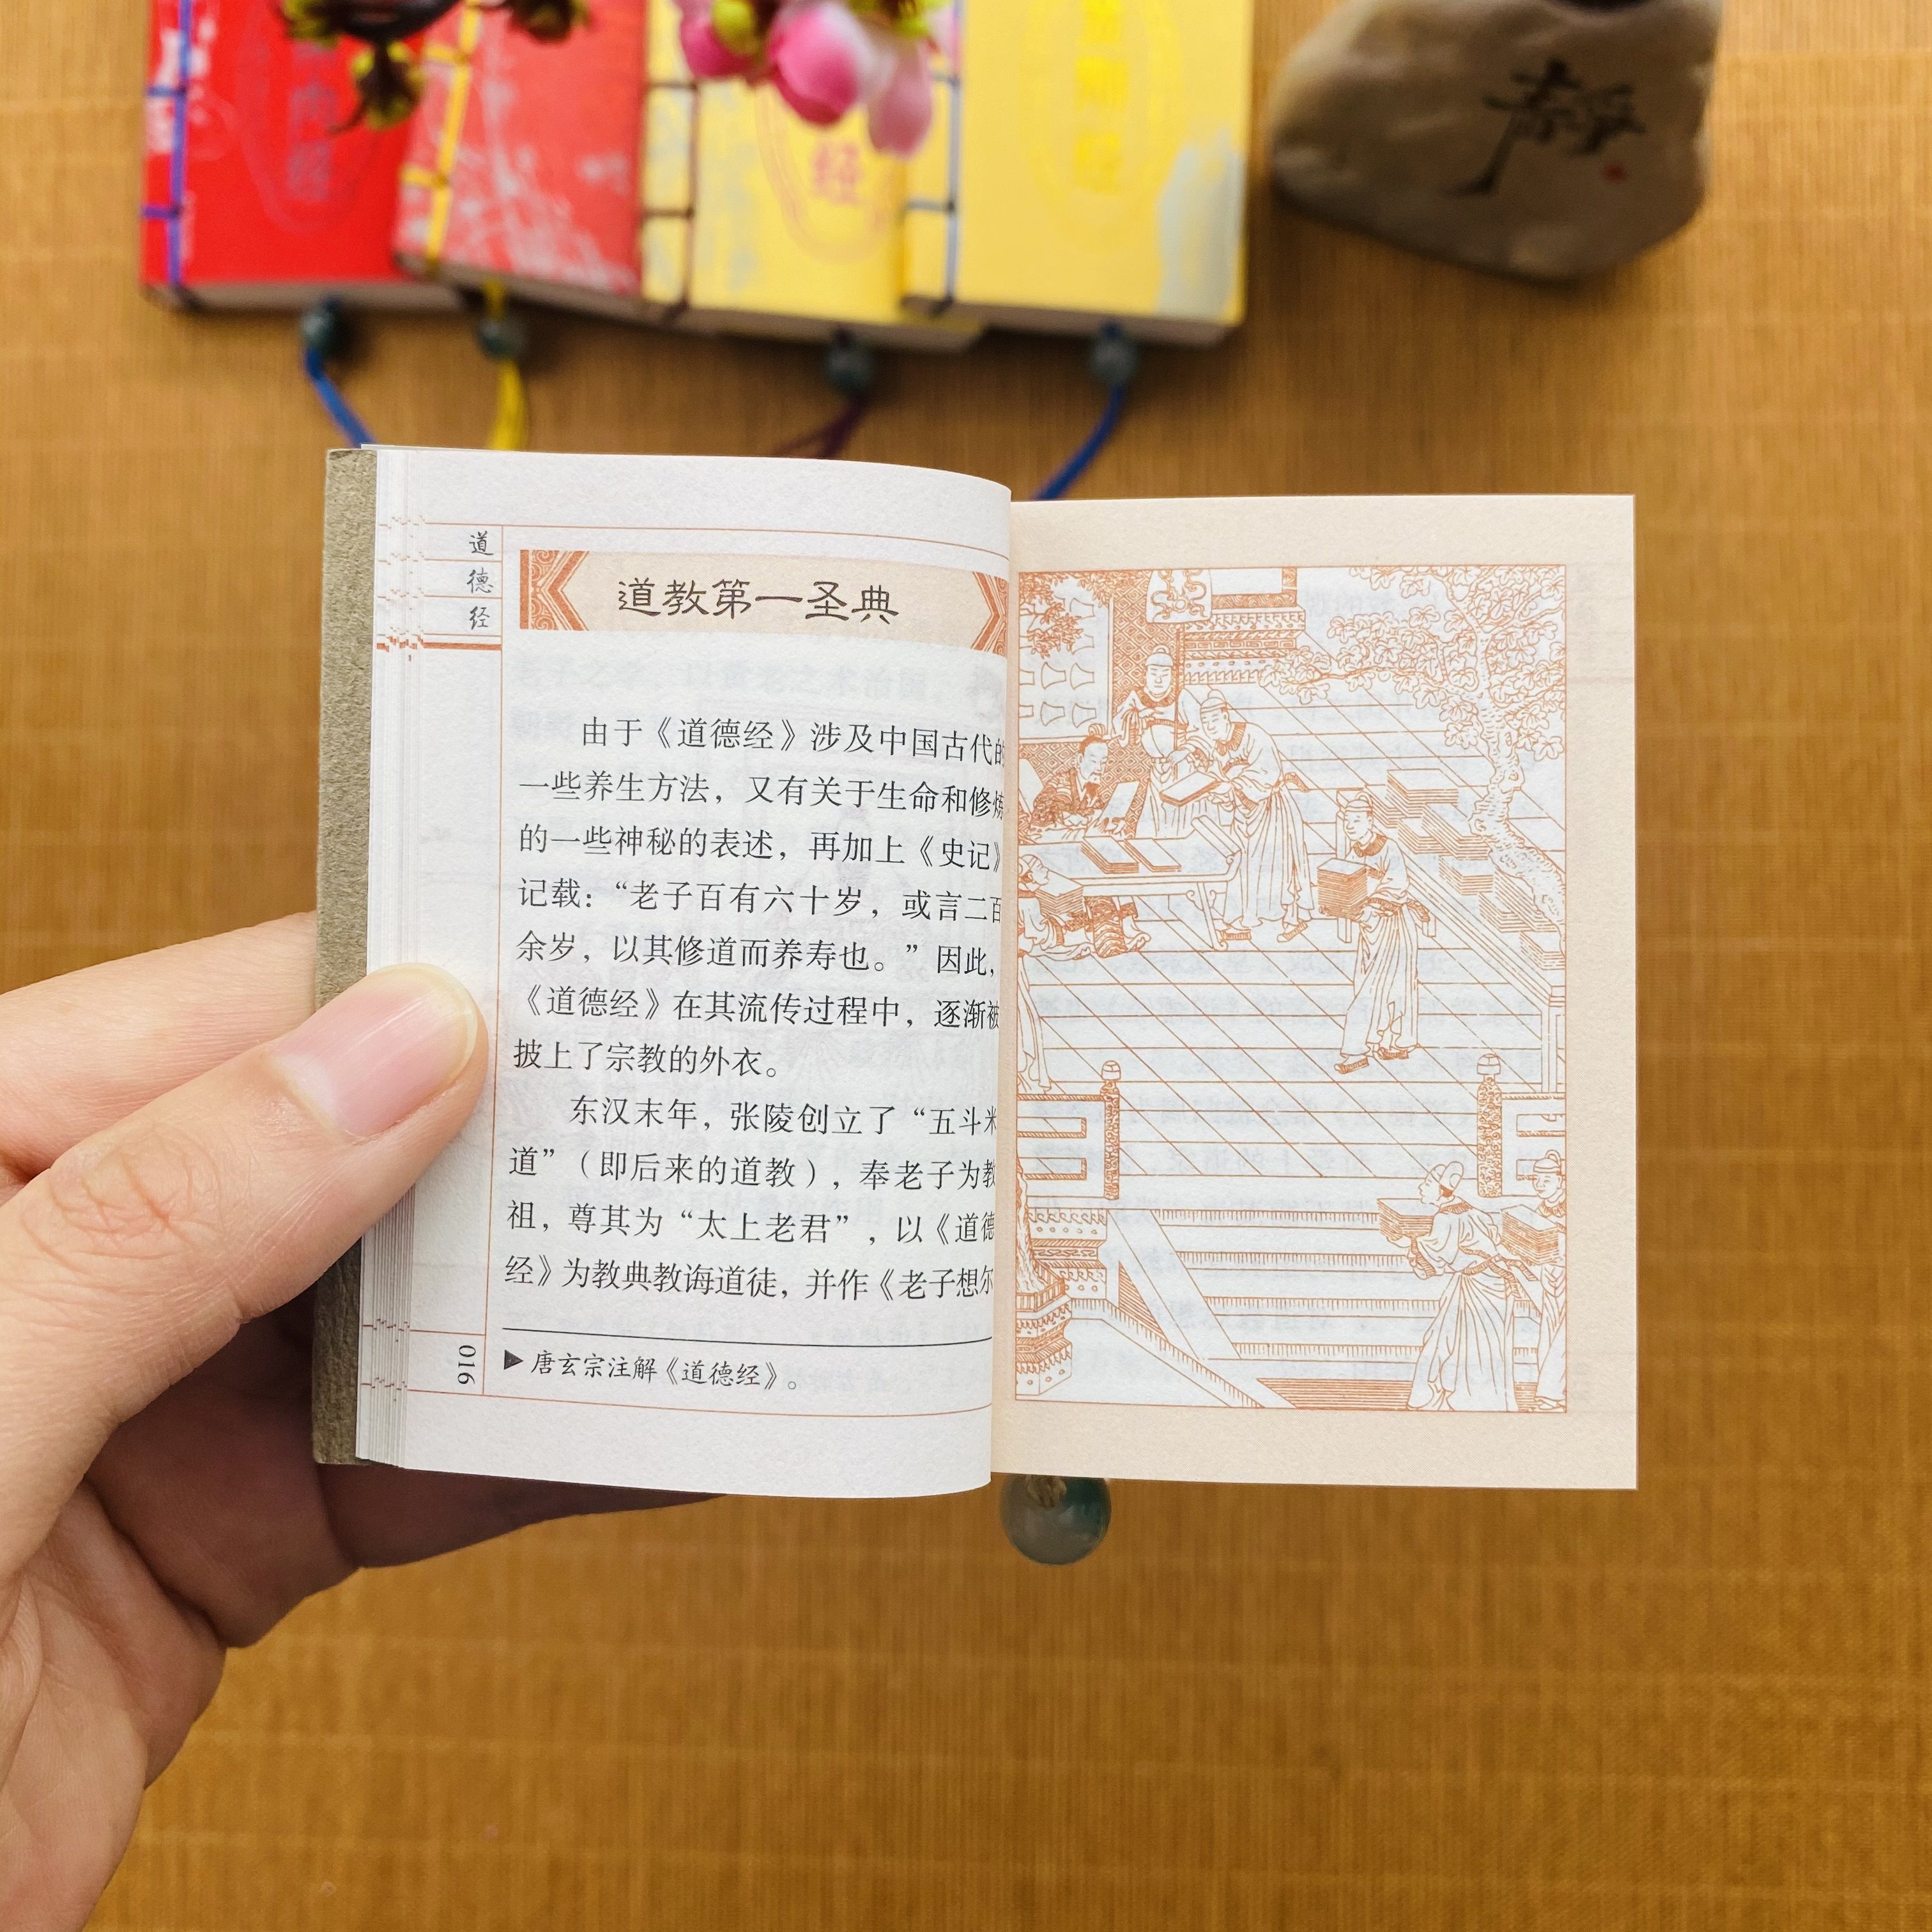 经
道德经
道教第一圣典
由于《道德经》涉及中国古代的
一些养生方法，又有关于生命和修炼
的一些神秘的表述，再加上《史记》
记载：“老子百有六十岁，或言二百
余岁，以其修道而养寿也。”因此，
《道德经》在其流传过程中，逐渐被
披上了宗教的外衣。
东汉末年，张陵创立了“五斗米
道”（即后来的道教），奉老子为教
祖，尊其为“太上老君”，以《道德
经》为教典教诲道徒，并作《老子想尔
▶唐玄宗注解《道德经》。
016